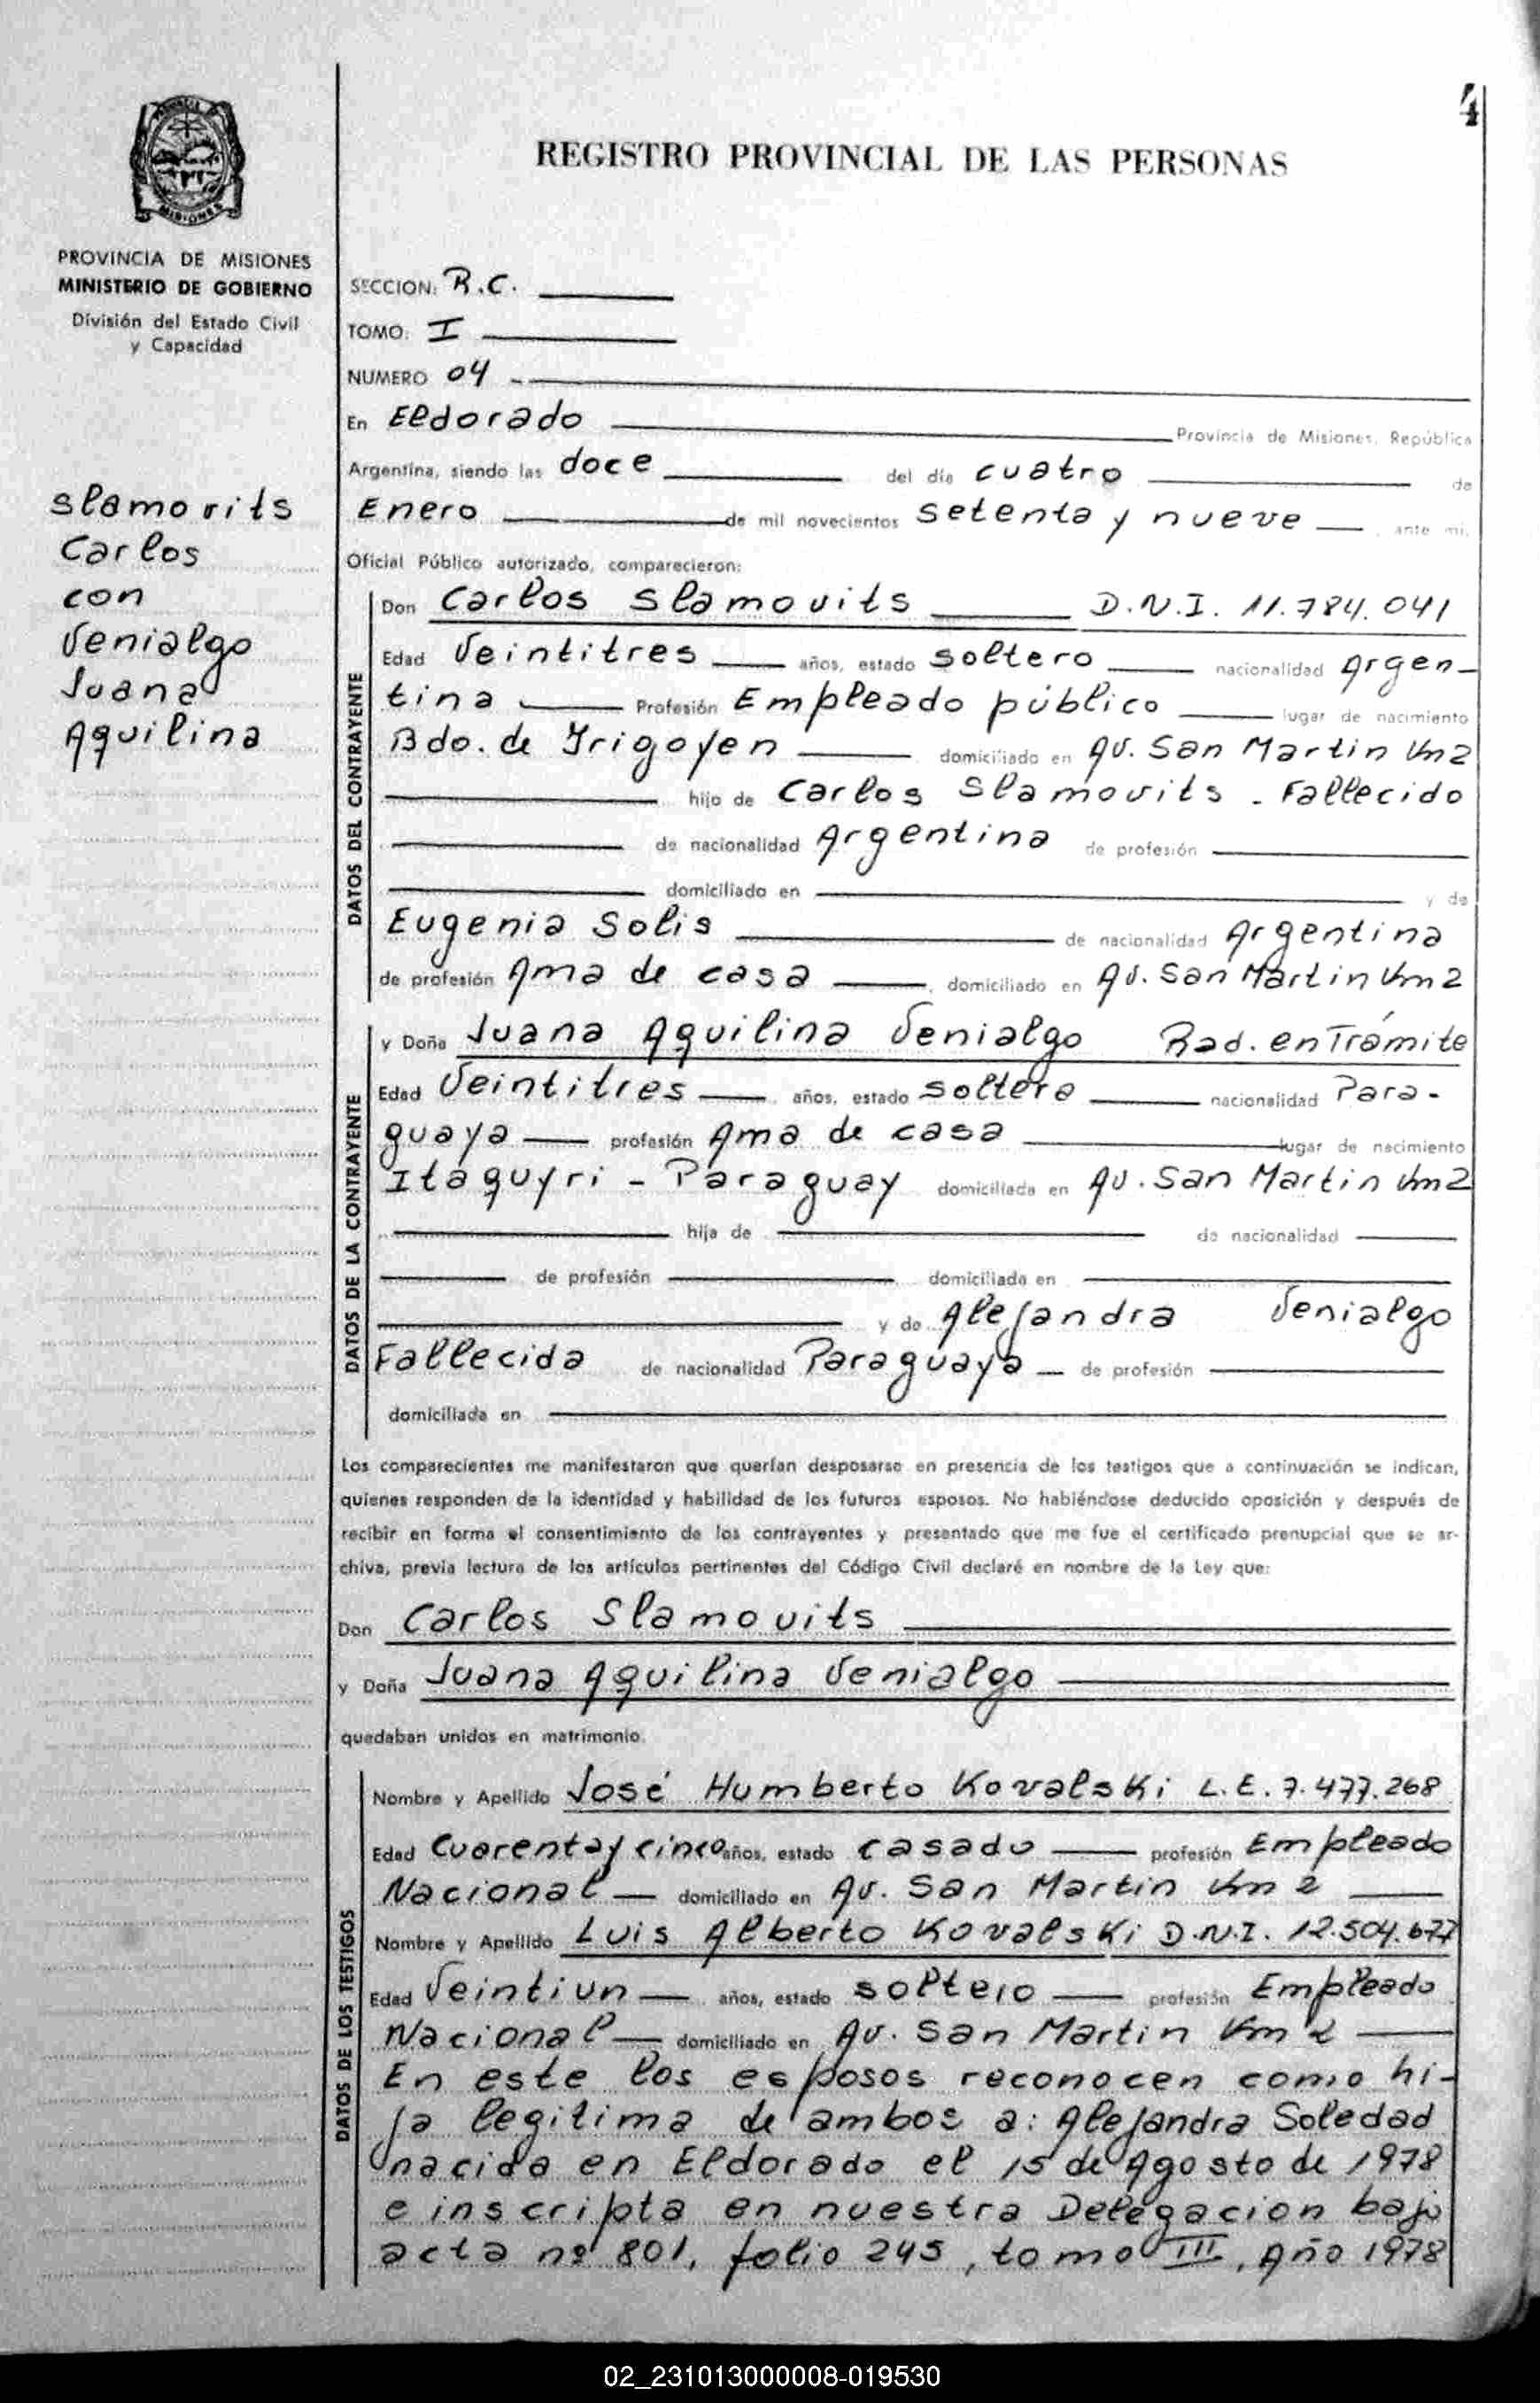 4
REGISTRO PROVINCIAL DE LAS PERSONAS
MISIONES
PROVINCIA DE MISIONES
MINISTERIO DE GOBIERNO
División del Estado Civil
y Capacidad
Slamovits
Carlos
con
Venialgo
Juana
Aquilina
SECCION: R.C.
TOMO: I
NUMERO 04 -
En Eldorado Provincia de Misiones, República
Argentina, siendo las doce del día cuatro de
Enero de mil novecientos setenta y nueve, ante mi,
Oficial Público autorizado, comparecieron:
DATOS DEL CONTRAYENTE
Don Carlos Slamovits D.N.I. 11.784.041
Edad Veintitres años, estado soltero nacionalidad Argen-
tina Profesión Empleado público lugar de nacimiento
Bdo. de Yrigoyen domiciliado en Av. San Martin Km 2
hijo de Carlos Slamovits - Fallecido
de nacionalidad Argentina de profesión
domiciliado en y de
Eugenia Solis de nacionalidad Argentina
de profesión Ama de casa, domiciliado en Av. San Martin Km 2
DATOS DE LA CONTRAYENTE
y Doña Juana Aquilina Venialgo Rad. en Trámite
Edad Veintitres años, estado soltera nacionalidad Para-
guaya profesión Ama de casa lugar de nacimiento
Itaquyri - Paraguay domiciliada en Av. San Martin Km 2
hija de de nacionalidad
de profesión domiciliada en
y de Alejandra Venialgo
Fallecida de nacionalidad Paraguaya de profesión
domiciliada en
Los comparecientes me manifestaron que querían desposarse en presencia de los testigos que a continuación se indican,
quienes responden de la identidad y habilidad de los futuros esposos. No habiéndose deducido oposición y después de
recibir en forma el consentimiento de los contrayentes y presentado que me fue el certificado prenupcial que se ar-
chiva, previa lectura de los artículos pertinentes del Código Civil declaré en nombre de la Ley que:
Don Carlos Slamovits
y Doña Juana Aquilina Venialgo
quedaban unidos en matrimonio.
DATOS DE LOS TESTIGOS
Nombre y Apellido José Humberto Kovalski L.E. 7.477.268
Edad Cuarenta y cinco años, estado casado profesión Empleado
Nacional domiciliado en Av. San Martin Km 2
Nombre y Apellido Luis Alberto Kovalski D.N.I. 12.504.677
Edad Veintiun años, estado soltero profesión Empleado
Nacional domiciliado en Av. San Martin Km 2
En este los esposos reconocen como hi-
ja legitima de ambos a: Alejandra Soledad
nacida en Eldorado el 15 de Agosto de 1978
e inscripta en nuestra Delegacion bajo
acta nº 801, folio 245, tomo III, Año 1978
02_231013000008-019530